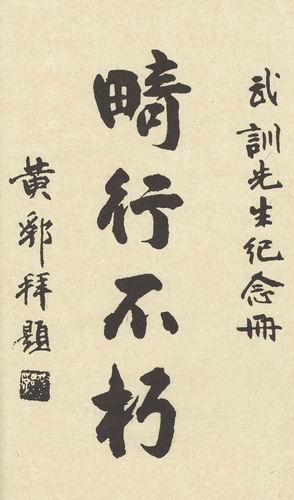 武訓先生纪念冊
畸行不朽
黄郛拜題